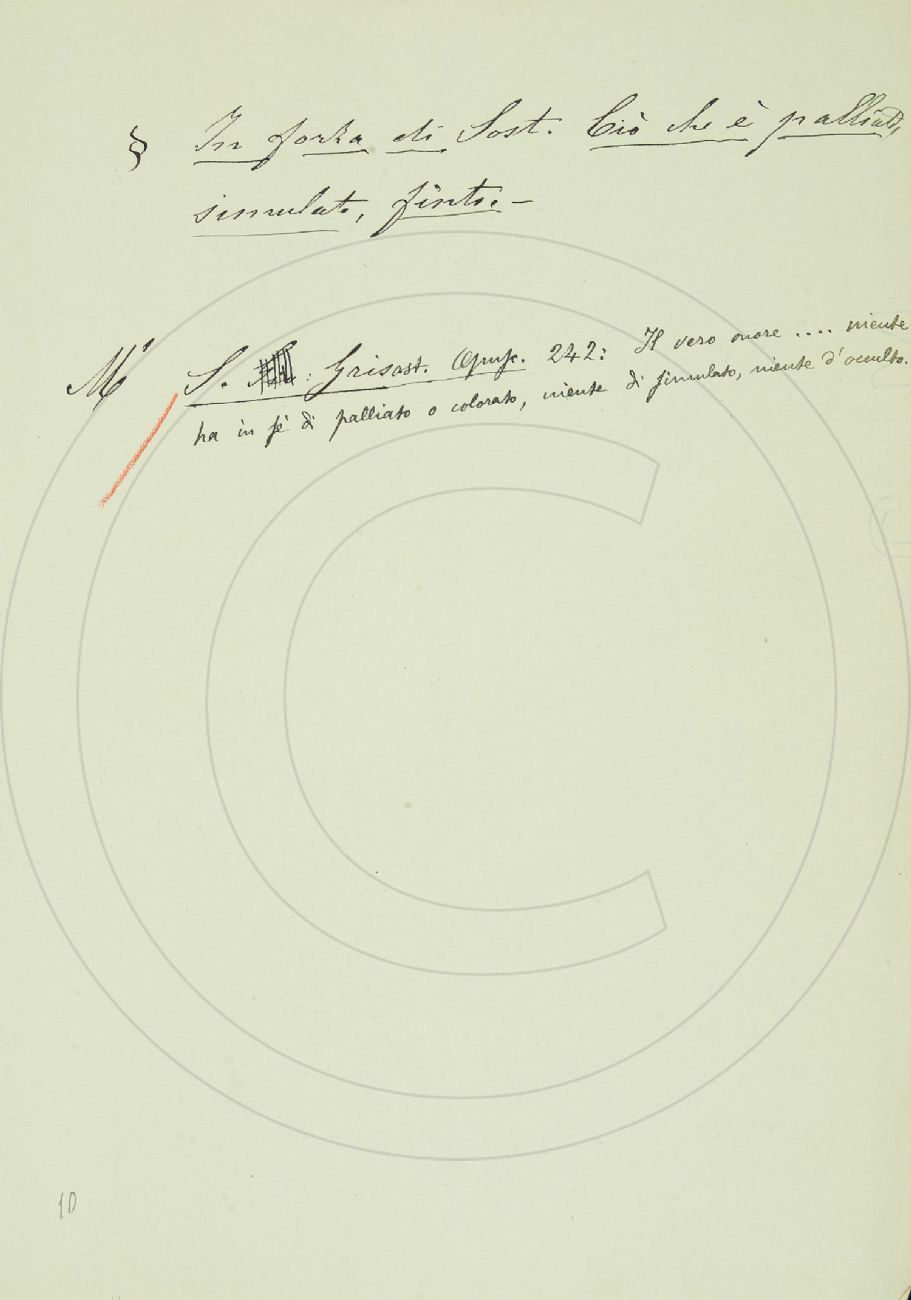 § In forza di Sost. Ciò che è palliato,
simulato, finto. –
M¹ S. Grisost. Opusc. 242: Il vero onore .... niente
ha in sé di palliato o colorato, niente di simulato, niente d'occulto.
10